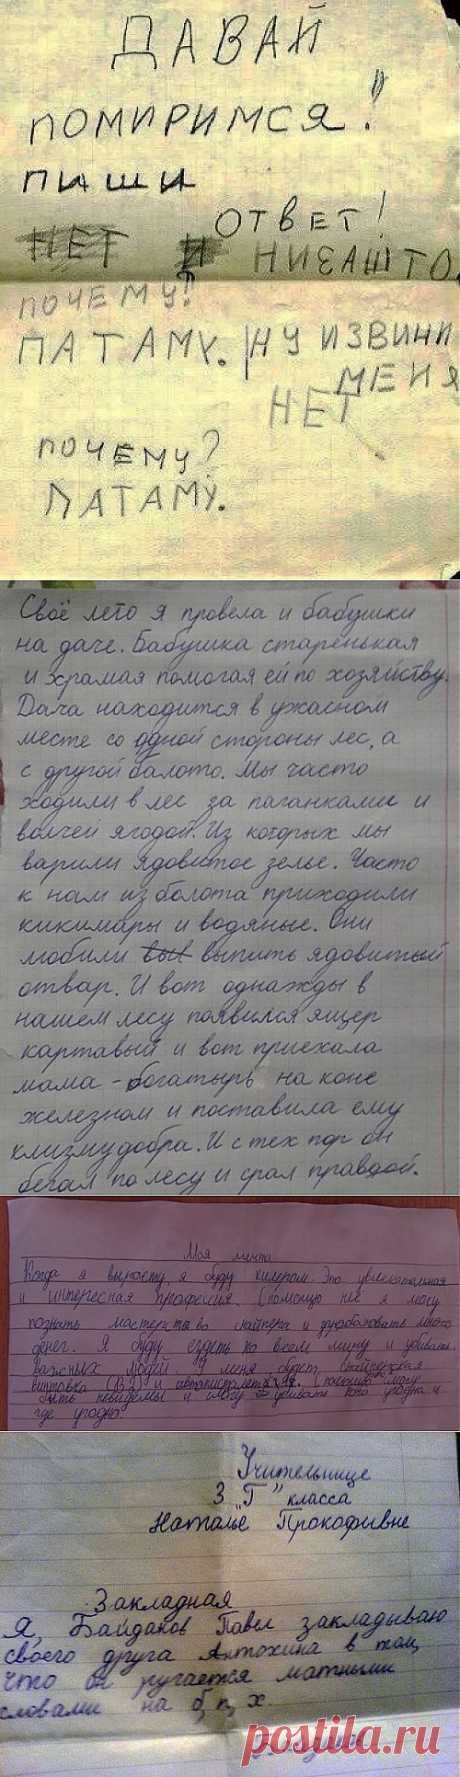 ДАВАЙ
ПОМИРИМСЯ!
ПИШИ
ОТВЕТ!
НЕТ И НИЗАШТО.
ПОЧЕМУ!
ПАТАМУ. НУ ИЗВИНИ
МЕНЯ
НЕТ
ПОЧЕМУ?
ПАТАМУ.
Своё лето я провела и бабушки
на даче. Бабушка старенькая
и храмая помогая ей по хозяйству.
Дача находится в ужасном
месте со одной стороны лес, а
с другой балото. Мы часто
ходили в лес за паганками и
волчей ягодой. Из которых мы
варили ядовитое зелье. Часто
к нам из болота приходили
кикимары и водяные. Они
любили выпить ядовитый
отвар. И вот однажды в
нашем лесу появился ящер
картавый и вот приехала
мама - богатырь на коне
железном и поставила ему
клизму добра. И с тех пор он
бегал по лесу и срал правдой.
Моя мечта
Когда я вырасту, я буду килером. Это увлекательная
и интересная професия. С помощю неё я могу
познать мастерство снайпера и зарабатовать много
денег. Я буду ездеть по всем миру и убивать
важных людей. У меня будет снайперская
винтовка (ВЗ) и
быть невидемы и смогу убивать кого угодно и
где угодно.
Учительнице
3 "Г" класса
Наталье Прокофивне
Закладная
Я, Байдаков Павел закладываю
своего друга Антохина в том,
что он ругается матными
словами на б, п, х.
postila.ru